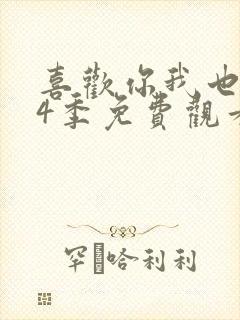 喜歡你我也
4季免費觀
罕哈利利